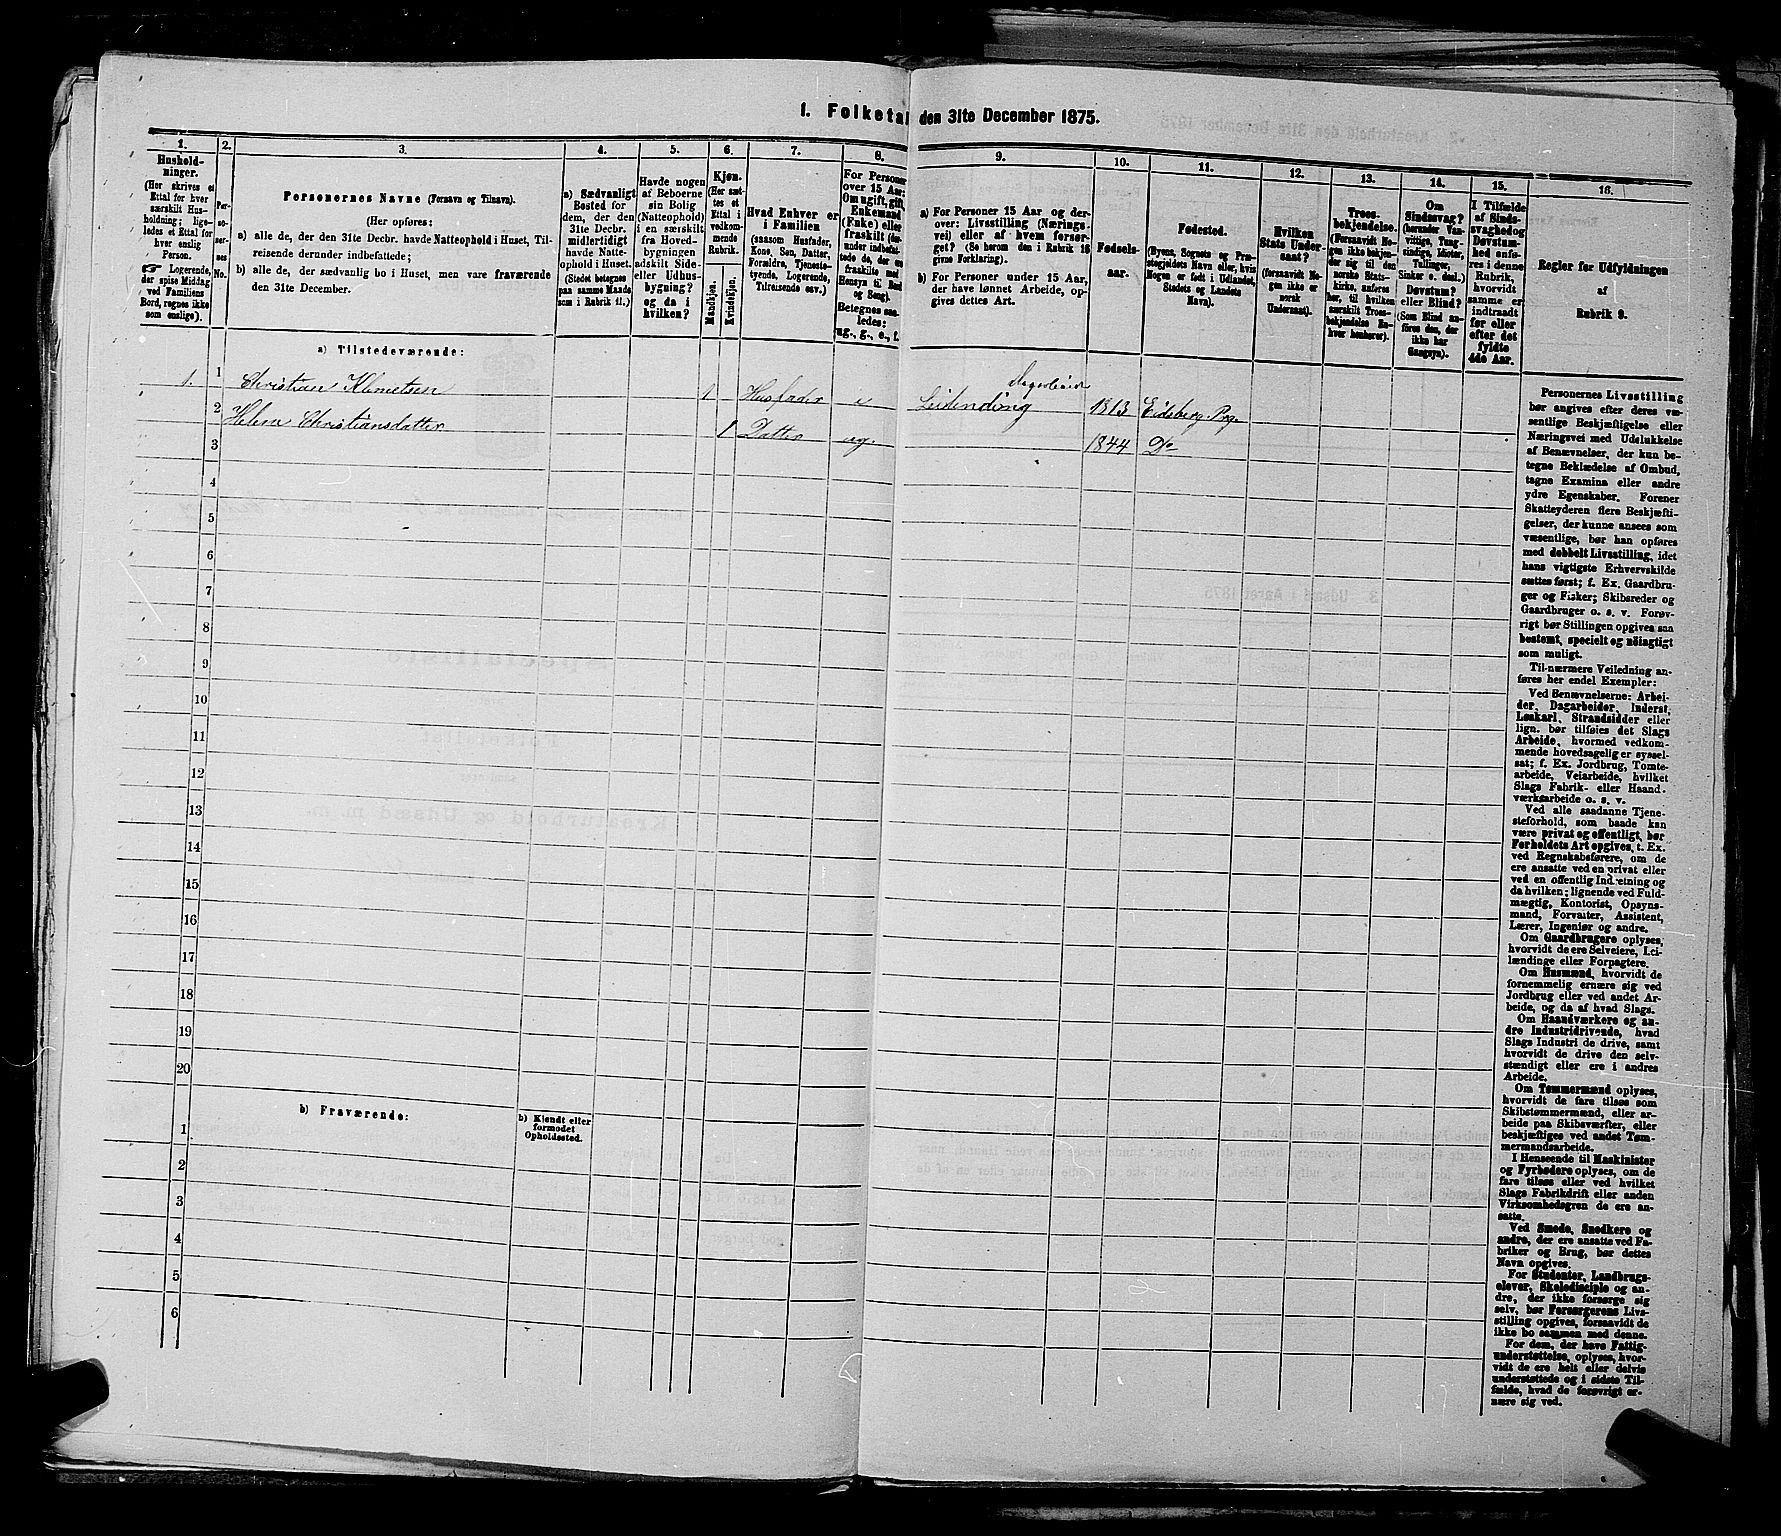 1. Folketal den 31te December 1875.
1.
Hushold-
ninger.
(Her skrives et
Ettal for hver
særskilt Hus-
holdning; lige-
ledes et Ettal for
hver enslig
Person.
Logerende,
der spise Middag
ved Familiens
Bord, regnes ikke
som enslige).
2.
Per-
so-
ner-
nes
No.
3.
Personernes Navne (Fornavn og Tilnavn).
(Her opføres:
a) alle de, der den 31te Decbr. havde Natteophold i Huset, Til-
reisende derunder indbefattede;
b) alle de, der sædvanlig bo i Huset, men vare fraværende
den 31te December.
4.
a) Sædvanligt
Bosted for
dem, der den
31te Decbr.
midlertidigt
havde Natte-
ophold i Huset.
(Stedet betegnes
paa samme Maade
som i Rubrik 11.)
5.
Havde nogen
af Beboerne
sin Bolig
(Natteophold)
i en særskilt
fra Hoved-
bygningen
adskilt Side-
eller Udhus-
bygning?
og da i
hvilken?
6.
Kjøn.
(Her sæt-
tes et
Ettal i
vedkom-
mende
Rubrik.
Mandkjøn.
Kvindekjøn.
7.
Hvad Enhver er
i Familien
(saasom Husfader,
Kone, Søn, Datter,
Forældre, Tjeneste-
tyende, Logerende,
Tilreisende osv.)
8.
For Personer
over 15 Aar:
Om ugift, gift,
Enkemand
(Enke) eller
fraskilt
Betegnes saa-
ledes:
ug., g., e., f.
9.
a) For Personer 15 Aar og der-
over: Livsstilling (Nærings-
vei) eller af hvem forsør-
get? (Se herom den i Rubrik 16
givne Forklaring).
b) For Personer under 15 Aar,
der have lønnet Arbeide, op-
gives dettes Art.
10.
Fødsels-
aar.
11.
Fødested.
(Byens, Sognets og Præ-
stegjeldets Navn eller, hvis
Nogen er født i Udlandet,
Stedets og Landets
Navn).
12.
Hvilken
Stats Under-
saat?
(forsaavidt No-
gen ikke er
norsk
Undersaat).
13.
Troes-
bekjendelse.
(Forsaavidt No-
gen ikke bekjen-
der sig til den
norske Stats-
kirke, anføres
her, til hvilken
særskilt Troes-
bekjendelse En-
hver henhører).
14.
Om
Sindssvag?
(herunder Van-
vittige, Tung-
sindige, Idioter,
Tullinger,
Sinker o. desl.)
Døvstum?
eller Blind?
(Som Blind an-
føres den, der
ikke har
Gangsyn).
15.
I Tilfælde
af Sinds-
svaghed og
Døvstum-
hed anfø-
res i denne
Rubrik,
hvorvidt
samme er
indtraadt
før eller
efter det
fyldte
4de Aar.
16.
Regler for Udfyldningen
af
Rubrik 9.
a) Tilstedeværende:
1. 1 Christian Klemetsen 1 Husfader e Leilending Dagarbeider 1813 Eidsberg Prg.
2 Helene Christiansdatter 1 Datter ug. 1844 Do
3
4
5
6
7
8
9
10
11
12
13
14
15
16
17
18
19
20
b) Fraværende:
b) Kjendt eller
formodet
Opholdssted.
1
2
3
4
5
6
Personernes Livsstilling
bør angives efter deres væ-
sentlige Beskjæftigelse eller
Næringsvei med Udelukkelse
af Benævnelser, der kun be-
tegne Beklædelse af Ombud,
tagne Examina eller andre
ydre Egenskaber. Forener
Skatteyderen flere Beskjæfti-
gelser, der kunne ansees som
væsentlige, bør han opføres
med dobbelt Livsstilling, idet
hans vigtigste Erhvervskilde
sættes først; f. Ex. Gaardbru-
ger og Fisker; Skibsreder og
Gaardbruger o. s. v. Forøv-
rigt bør Stillingen opgives saa
bestemt, specielt og nöiagtigt
som muligt.
Til nærmere Veiledning an-
føres her endel Exempler:
Ved Benævnelserne: Arbei-
der, Dagarbeider, Inderst,
Løskarl, Strandsidder eller
lign. bør tilføies det Slags
Arbeide, hvormed vedkom-
mende hovedsagelig er syssel-
sat; f. Ex. Jordbrug, Tomte-
arbeide, Veiarbeide, hvilket
Slags Fabrik- eller Haand-
værksarbeide o. s. v.
Ved alle saadanne Tjene-
steforhold, som baade kan
være privat og offentligt, bør
Forholdets Art opgives, t. Ex.
ved Regnskabsførere, om de
ere ansatte ved en privat eller
ved en offentlig Indretning og
da hvilken; lignende ved Fuld-
mægtig, Kontorist, Opsyns-
mand, Forvalter, Assistent,
Lærer, Ingeniør og andre.
Om Gaardbrugere oplyses,
hvorvidt de ere Selveiere, Lei-
lændinge eller Forpagtere.
Om Husmænd, hvorvidt de
fornemmelig ernære sig ved
Jordbrug eller ved andet Ar-
beide, og da af hvad Slags.
Om Haandværkere og an-
dre Industridrivende, hvad
Slags Industri de drive, samt
hvorvidt de drive den selv-
stændigt eller ere i andres
Arbeide.
Om Tømmermænd oplyses,
hvorvidt de fare tilsøs som
Skibstømmermænd, eller ar-
beide paa Skibsværfter, eller
beskjæftiges ved andet Tøm-
mermandsarbeide.
I Henseende til Maskinister
og Fyrbødere oplyses, om de
fare tilsøs eller ved hvilket
Slags Fabrikdrift eller anden
Virksomhedsgren de ere an-
satte.
Ved Smede, Snedkere og
andre, der ere ansatte ved Fa-
briker og Brug, bør dettes
Navn opgives.
For Studenter, Landbrugs-
elever, Skoledisciple og an-
dre, der ikke forsørge sig
selv, bør Forsørgerens Livs-
stilling opgives, forsaavidt de
ikke bo sammen med denne.
For dem, der have Fattig-
understøttelse, oplyses, hvor-
vidt de ere helt eller delvis
understøttede og i sidste Til-
fælde, hvad de forøvrigt er-
nære sig ved.